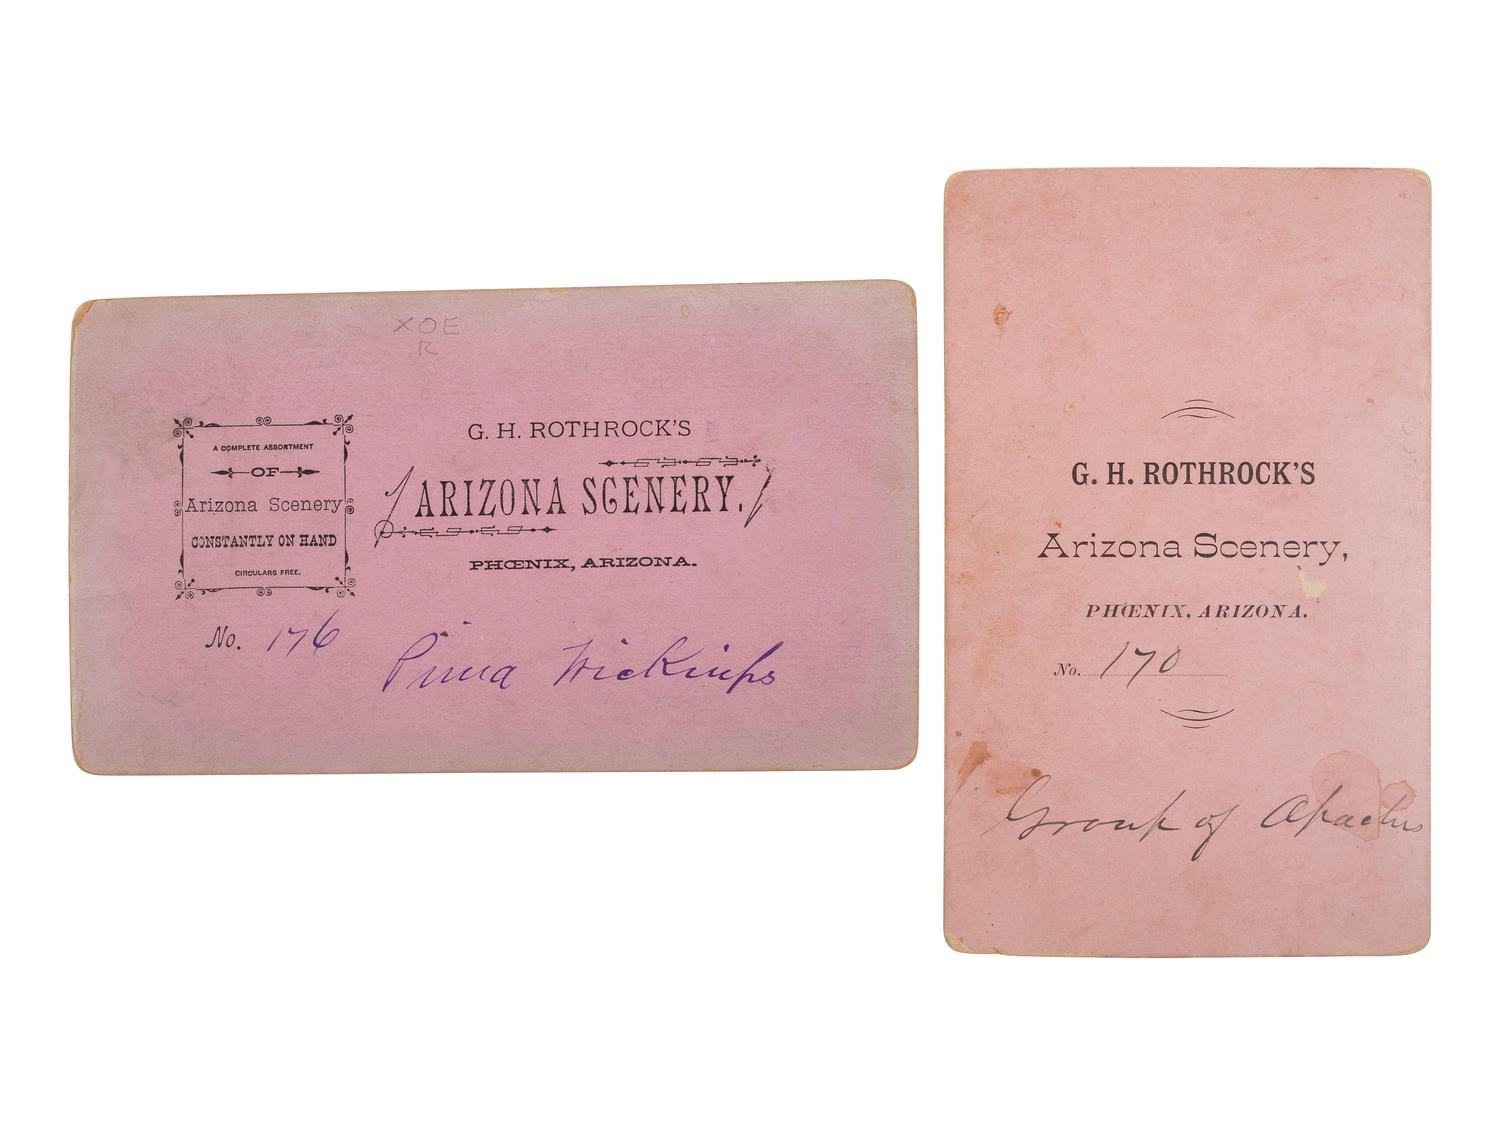 XOE
R
A COMPLETE ASSORTMENT
OF
Arizona Scenery
CONSTANTLY ON HAND
CIRCULARS FREE.
G. H. ROTHROCK'S
ARIZONA SCENERY.
PHŒNIX, ARIZONA.
No. 176
Pima Wickiups
G. H. ROTHROCK'S
Arizona Scenery,
PHŒNIX, ARIZONA.
No. 170
Group of Apaches